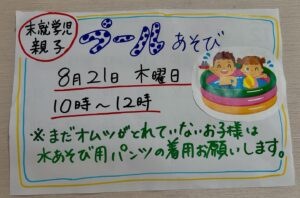 未就学児
親子
プールあそび
8月21日 木曜日
10時～12時
※まだオムツがとれていないお子様は
水あそび用パンツの着用お願いします。